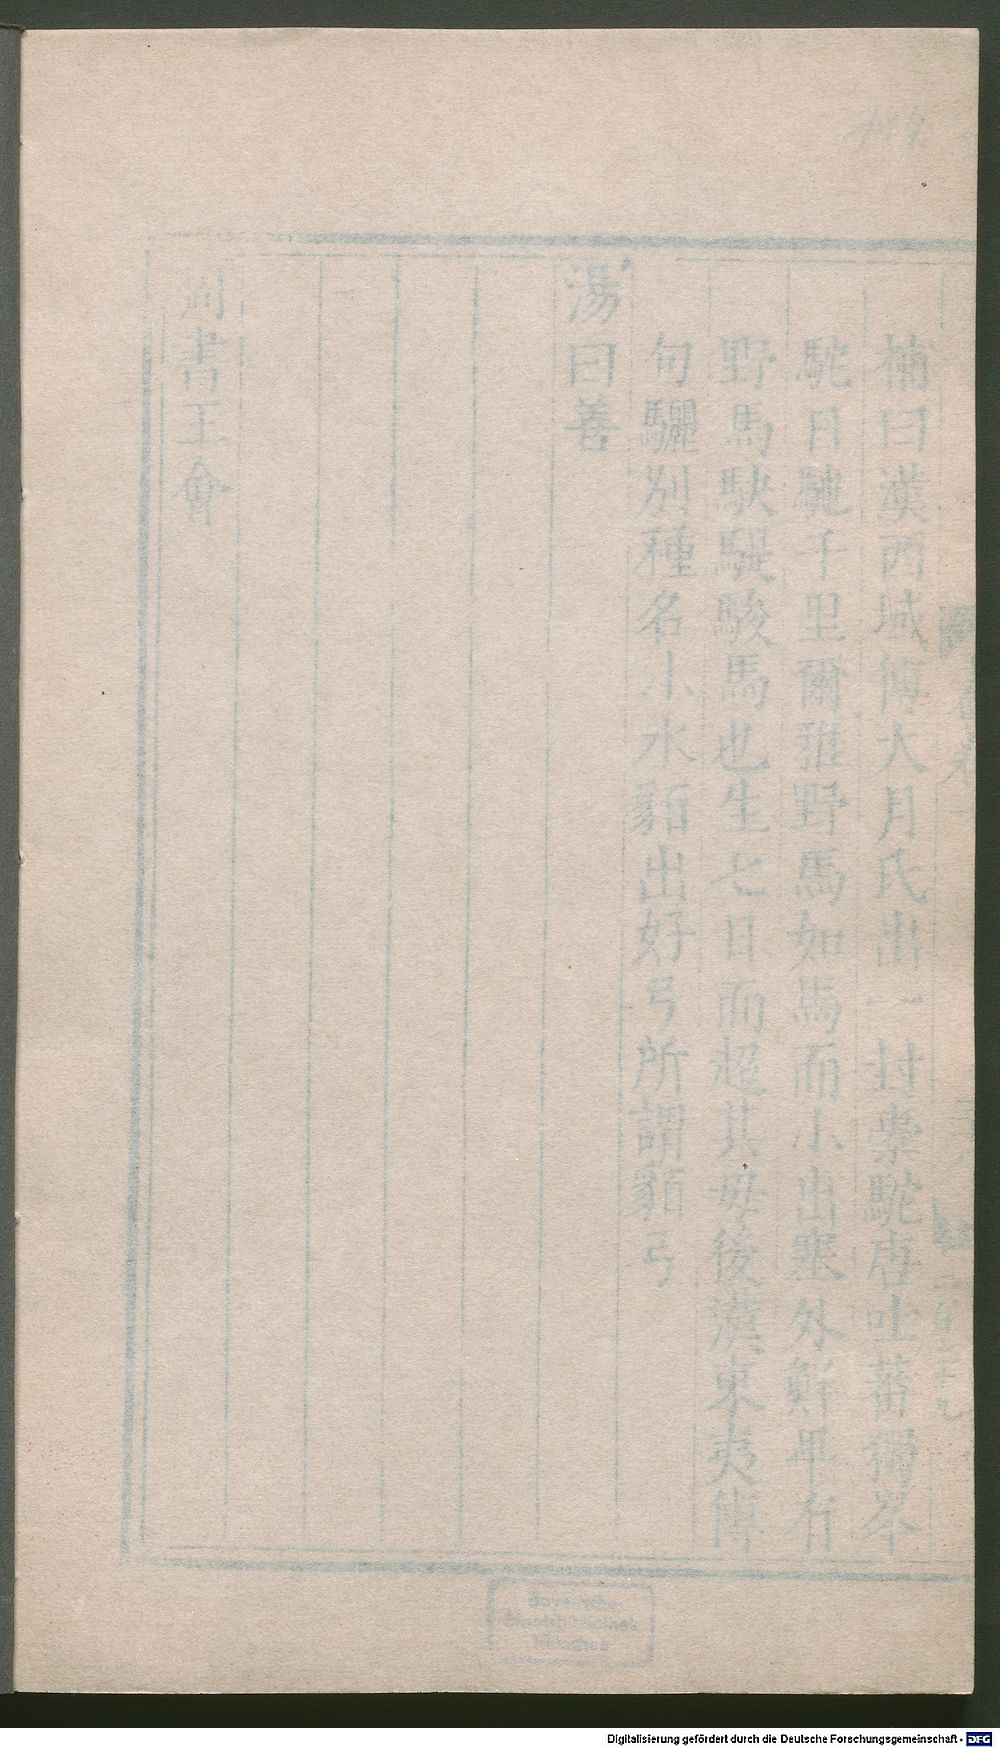 114
補曰漢西域傳大月氏出一封橐駝唐吐蕃獨峯
駝日馳千里爾雅野馬如馬而小出塞外鮮卑有
野馬駃騠駿馬也生七日而超其母後漢東夷傳
句驪別種名小水貊出好弓所謂貊弓
湯曰善
周書王會
Bayerische
Staatsbibliothek
München
Digitalisierung gefördert durch die Deutsche Forschungsgemeinschaft - DFG